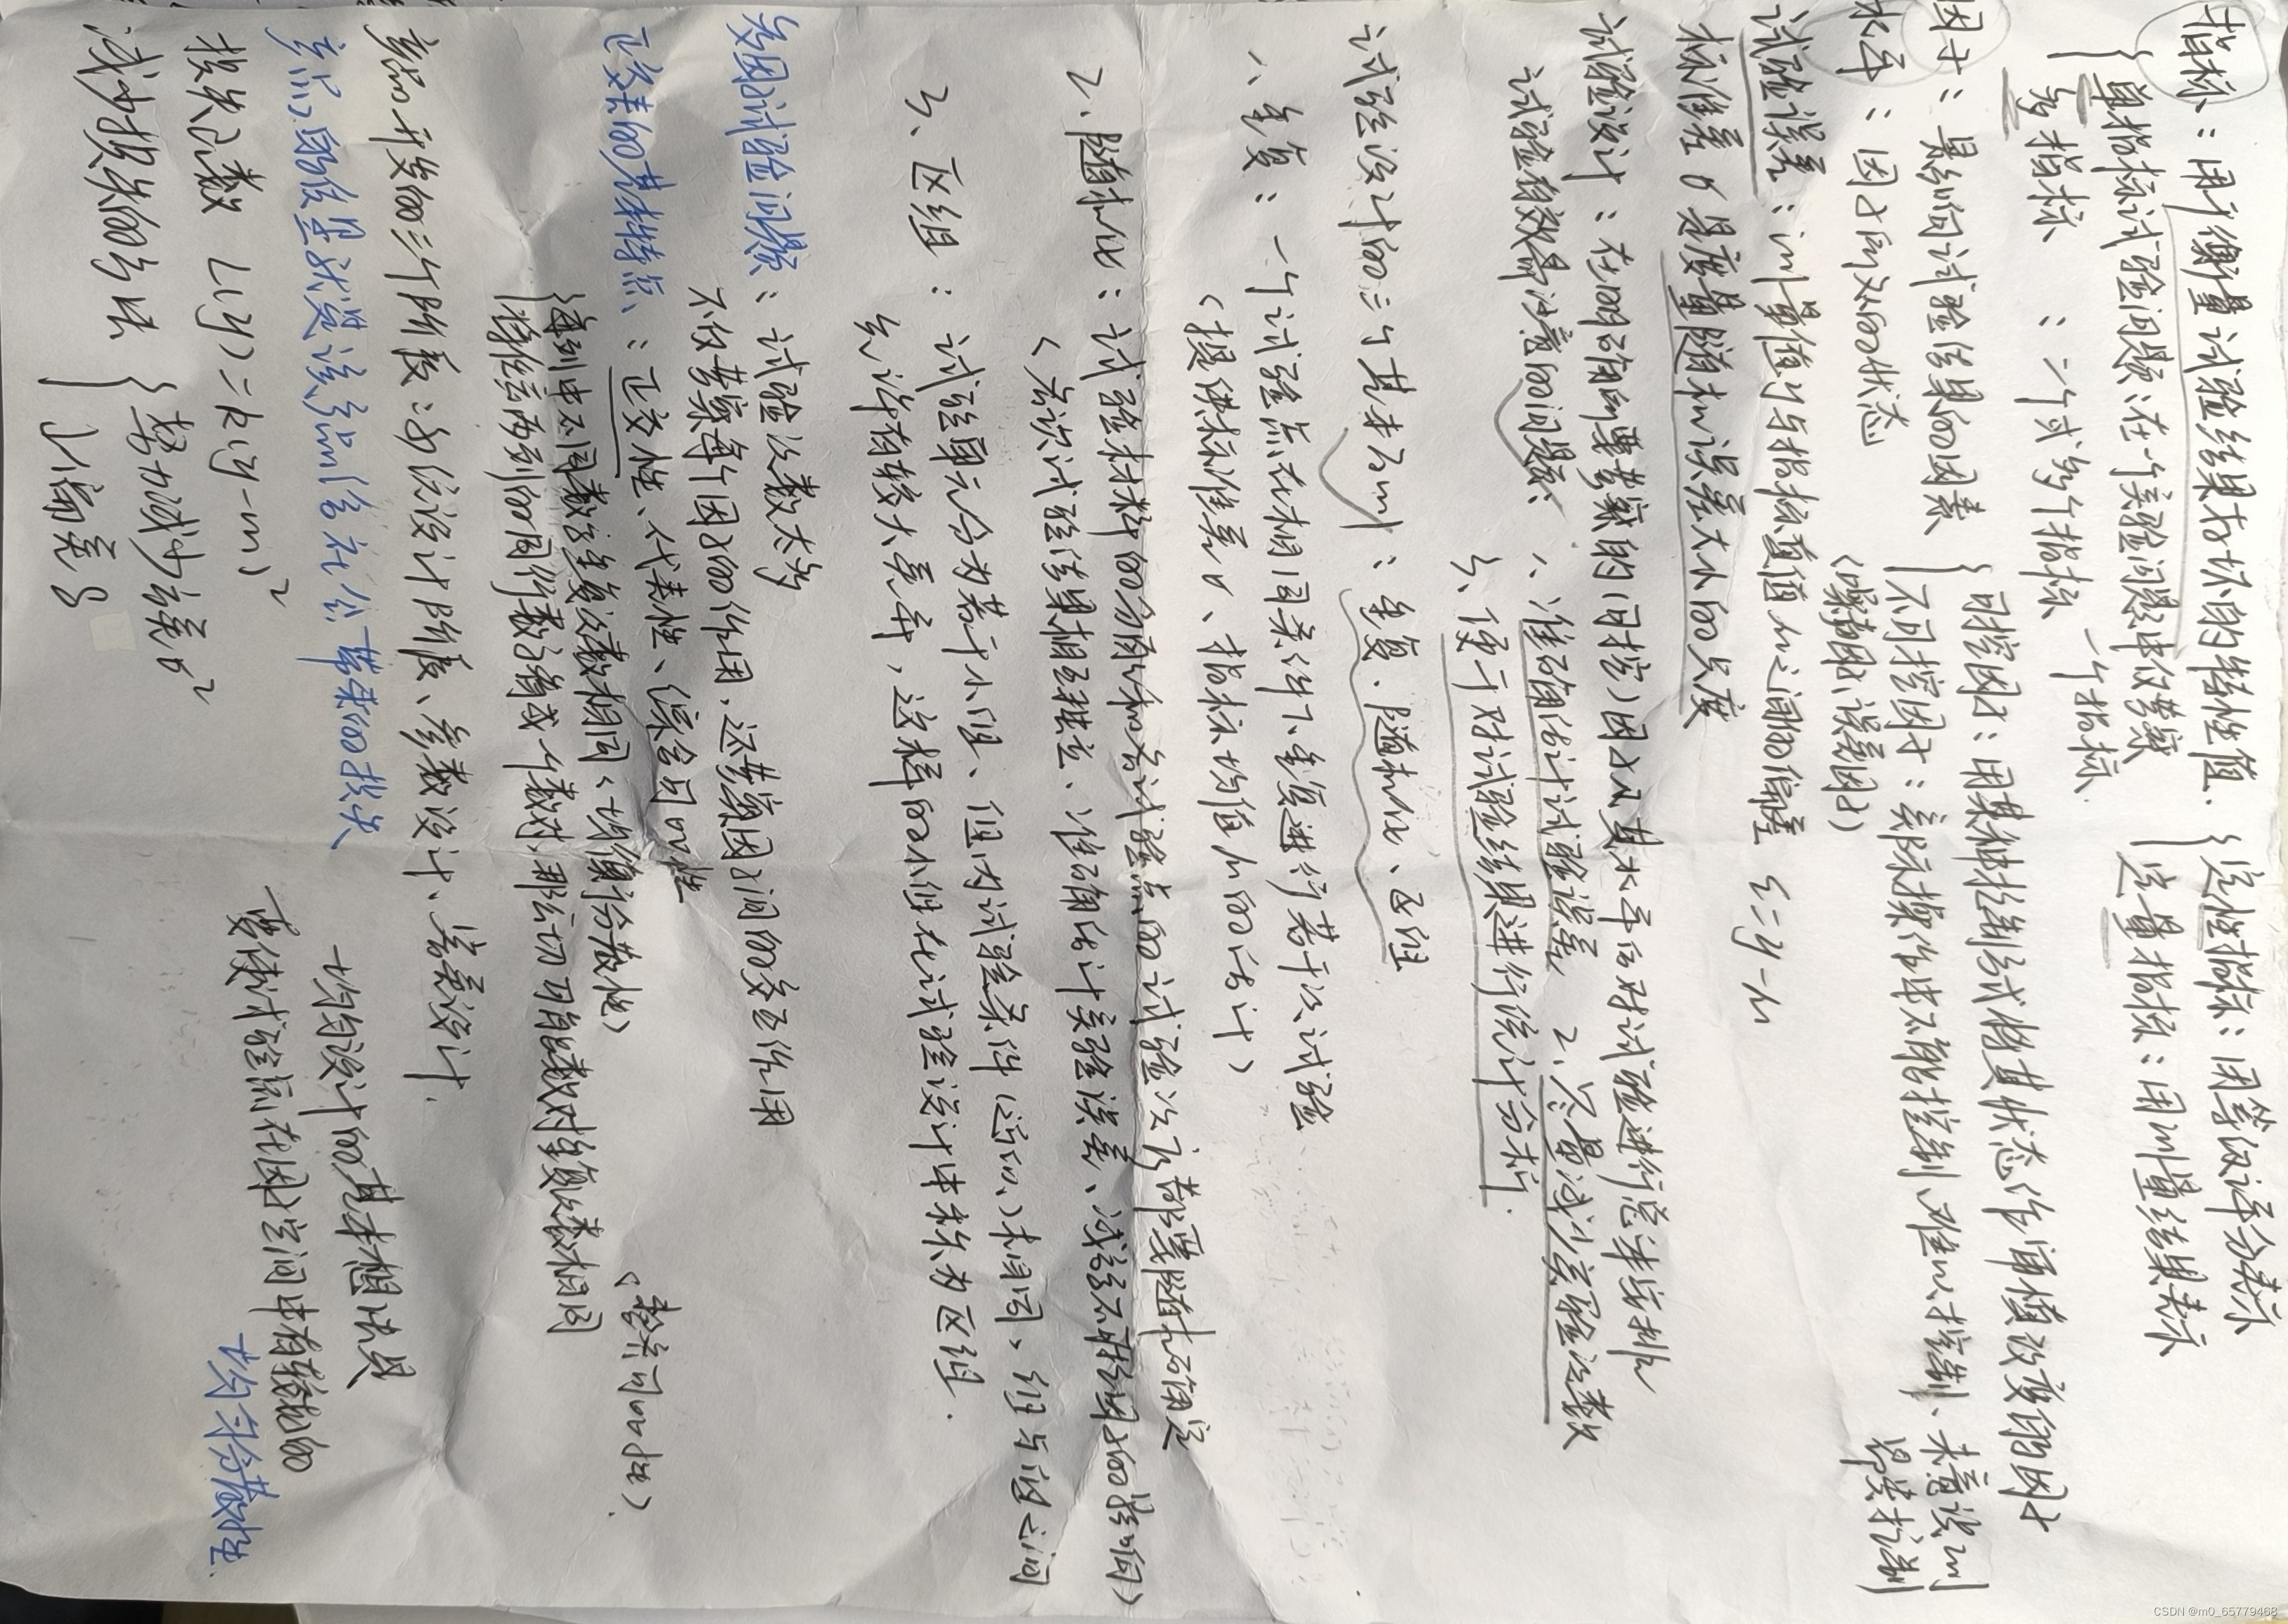 指标：用于衡量试验结果好坏的特性值.
{定性指标：用等级评分表示
定量指标：用测量结果表示
{单指标试验问题：在一个实验问题中仅考察一个指标.
多指标：二个或多个指标
因子：影响试验结果的因素
{可控因子：用某种控制或将其状态作
不可控因子：实际操作中不能控制、难以控制、未意识到
(噪声因子，误差因子)
水平：因子所处的状态
试验误差：测量值y与指标真值μ之间的偏差 ε=y-μ
标准差σ是度量随机误差大小的尺度
试验设计：在明确所要考察的(可控)因子及其水平后对试验进行总体安排
试验有效最注意的问题：1、准确估计试验误差 2、尽量减少实验次数
3、便于对试验结果进行统计分析.
试验设计的三个基本原则：重复、随机化、区组
1、重复：一个试验点在相同条件下重复进行若干次试验
(提供标准差σ、指标均值μ的估计)
2、随机化：试验材料的分配和各试验点的试验次序都要随机确定
(各次试验结果相互独立、准确估计实验误差、减弱不可控因子的影响)
3、区组：试验单元分为若干小组、但内试验条件(空间)相同、组与组之间
允许有较大差异，这样的小组在试验设计中称为区组.
多因子试验问题：试验次数太多
不仅考察每个因子的作用，还考察因子间的交互作用
正交表的基本特点：正交性、代表性、综合可比性
{每列中不同数字重复次数相同(均衡分散性)
将任意两列的同行数字看成一个数对，那么一切可能数对重复次数相同
(整齐可比性).
产品开发的三个阶段：系统设计阶段、参数设计、容差设计.
质量损失
损失函数 L(y)=k(y-m)²
减少损失的方法 {努力减少方差σ²
偏差δ
均匀设计的基本想法是
要使试验点在因子空间中有较好的
均匀分散性.
CSDN @m0_65779468